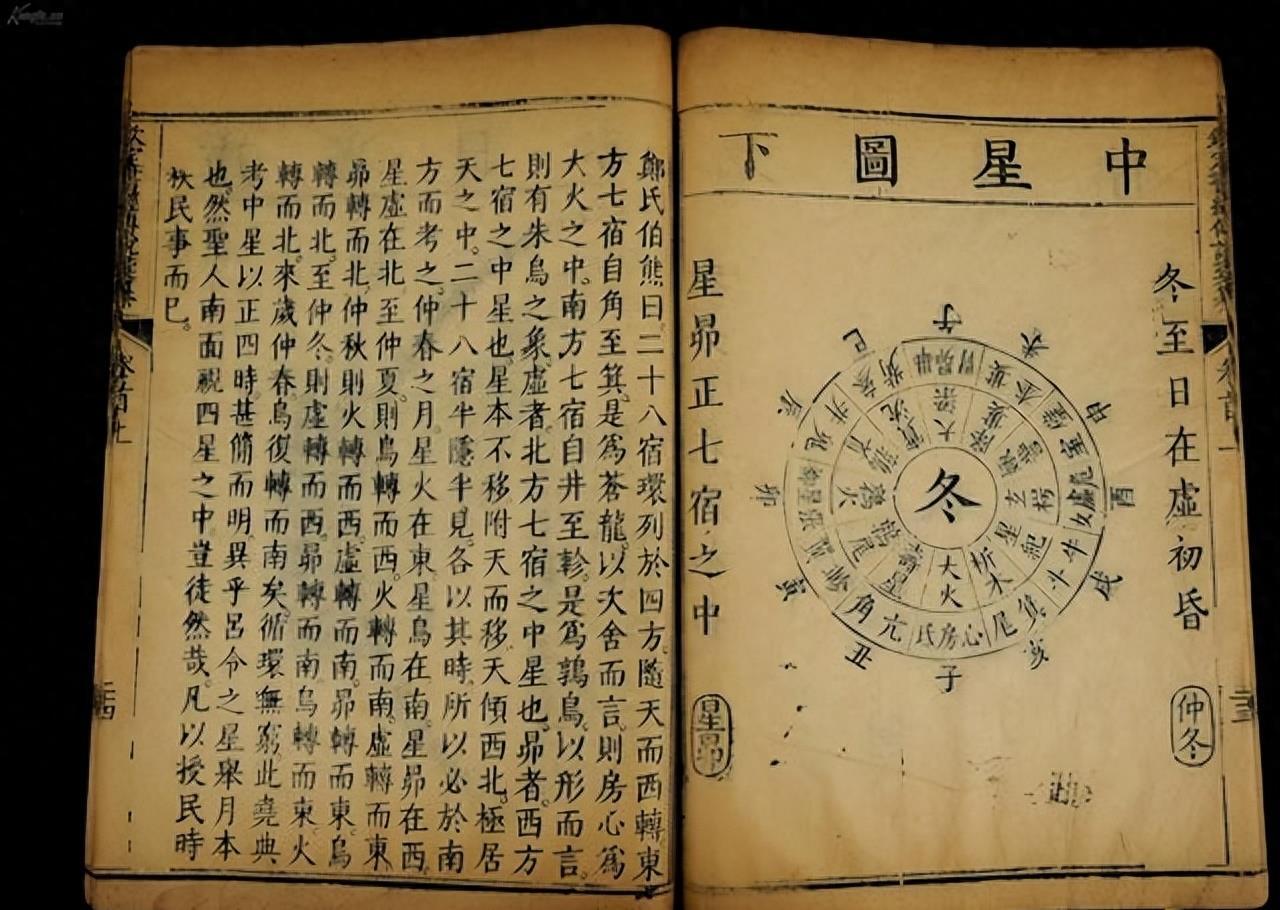 中星圖下
冬至日在虛初昏
仲冬
冬
大火
析木
星紀
玄枵
大梁
鶉火
鶉尾
壽星
氐房心
尾箕
斗牛
女虛危
井鬼
角亢
午
申
酉
戌
亥
子
丑
寅
卯
辰
巳
星昴正七宿之中
星昴
鄭氏伯熊曰二十八宿環列於四方隨天而西轉東
方七宿自角至箕是爲蒼龍以次舍而言則房心爲
大火之中南方七宿自井至軫是爲鶉鳥以形而言
則有朱鳥之象虛者北方七宿之中星也昴者西方
七宿之中星也星本不移附天而移天傾西北極居
天之中二十八宿半隱半見各以其時所以必於南
方而考之仲春之月星火在東星鳥在南星昴在西
星虛在北至仲夏則鳥轉而西火轉而南虛轉而東
昴轉而北仲秋則火轉而西虛轉而南昴轉而東鳥
轉而北至仲冬則虛轉而西昴轉而南鳥轉而東火
轉而北來歲仲春鳥復轉而南矣循環無窮此堯典
考中星以正四時甚簡而明異乎呂令之星舉月本
也然聖人南面視四星之中豈徒然哉凡以授民時
秩民事而已